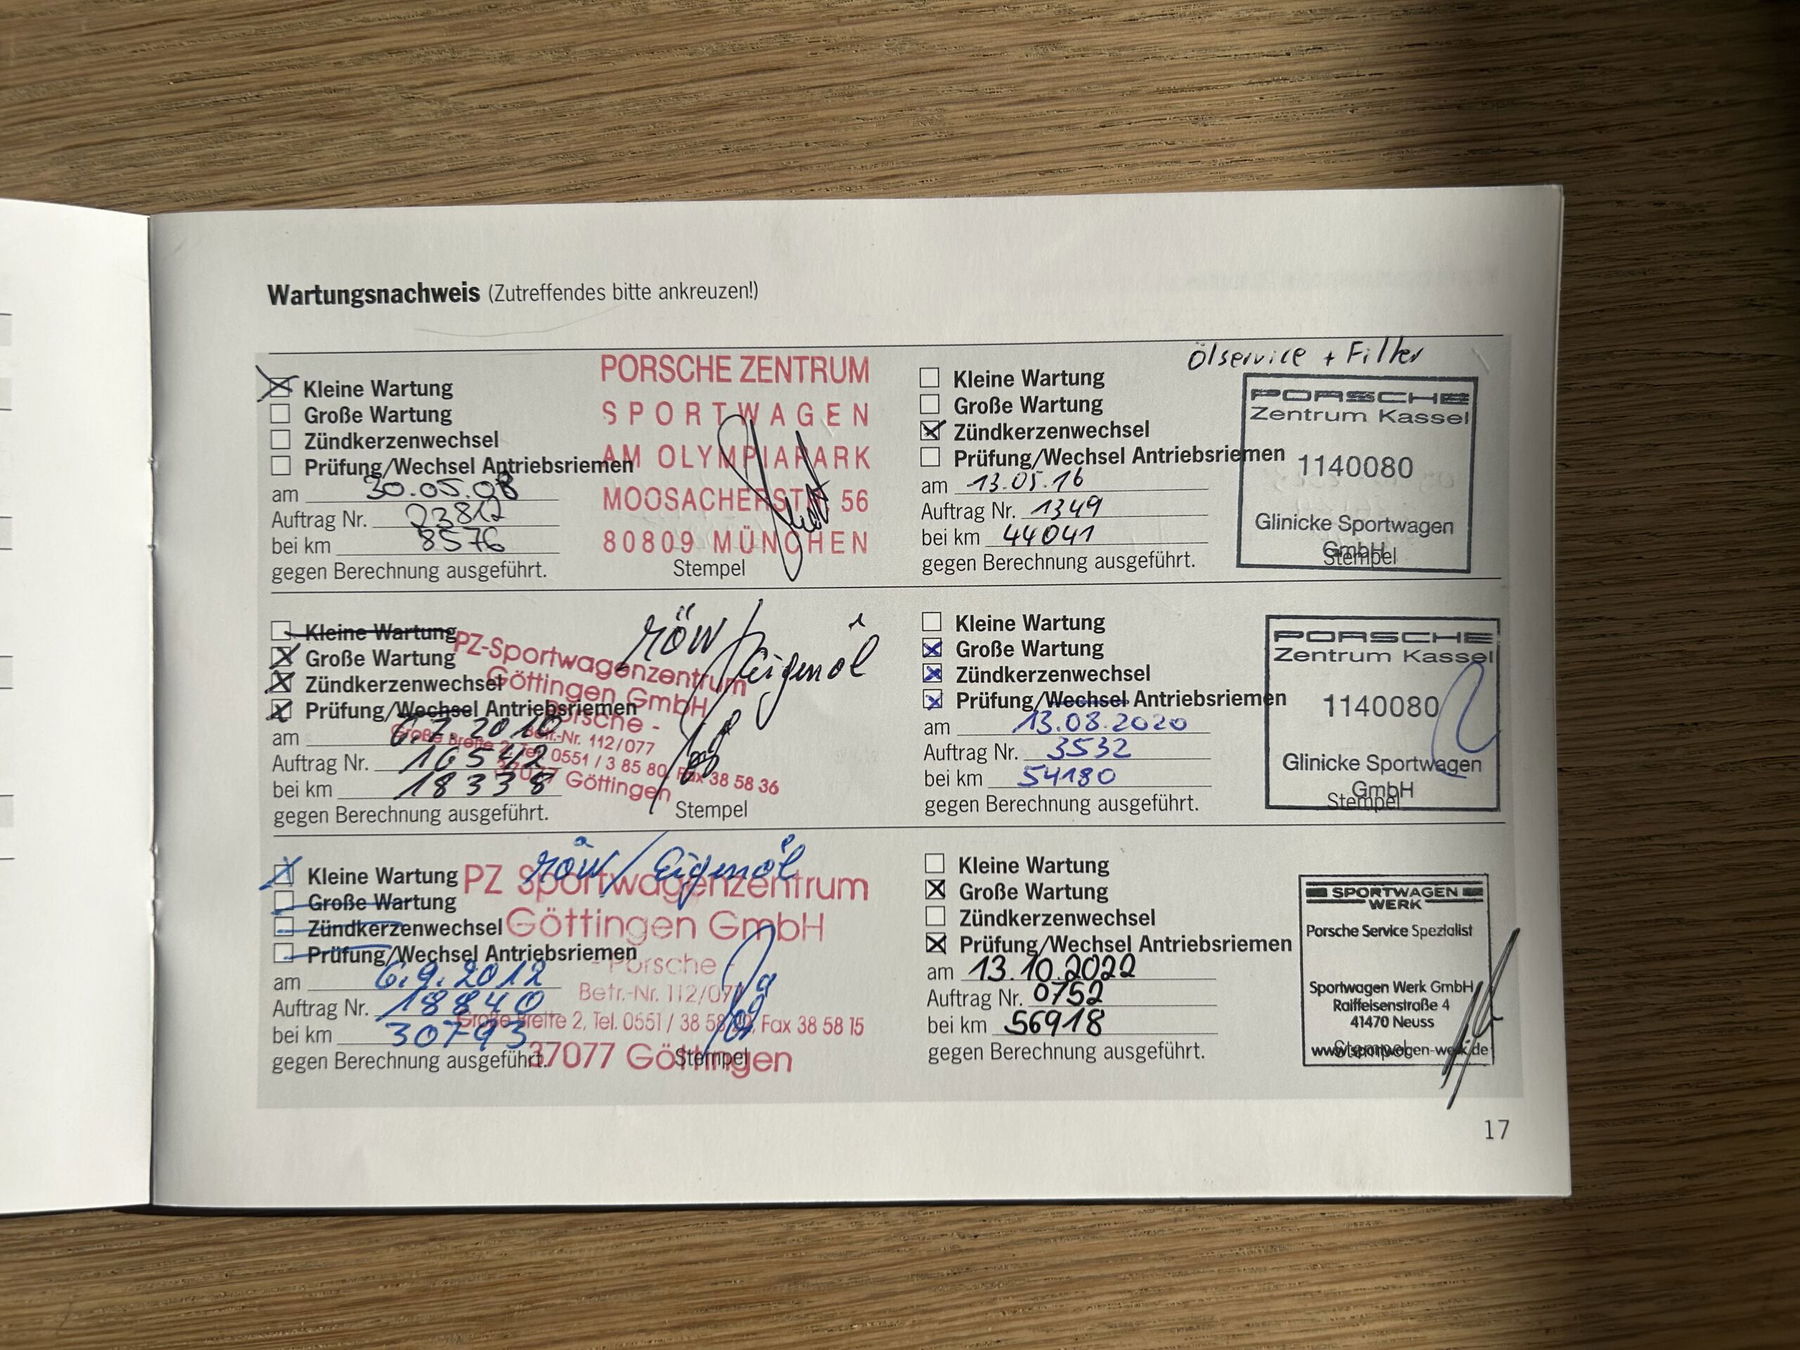 Wartungsnachweis (Zutreffendes bitte ankreuzen!)
Kleine Wartung
Große Wartung
Zündkerzenwechsel
Prüfung/Wechsel Antriebsriemen
am 30.05.08
Auftrag Nr. 03812
bei km 8576
gegen Berechnung ausgeführt.
PORSCHE ZENTRUM
SPORTWAGEN
AM OLYMPIAPARK
MOOSACHERSTR. 56
80809 MÜNCHEN
Stempel
Kleine Wartung
Große Wartung
Zündkerzenwechsel
Prüfung/Wechsel Antriebsriemen
am 13.05.16
Auftrag Nr. 1349
bei km 44041
gegen Berechnung ausgeführt.
Ölservice + Filter
PORSCHE
Zentrum Kassel
1140080
Glinicke Sportwagen
GmbH
Stempel
Kleine Wartung
Große Wartung
Zündkerzenwechsel
Prüfung/Wechsel Antriebsriemen
am 6.7.2010
Auftrag Nr. 16542
bei km 18338
gegen Berechnung ausgeführt.
röw/Eigenöl
PZ-Sportwagenzentrum
Göttingen GmbH
- Porsche -
Betr.-Nr. 112/077
Große Breite 2, Tel. 0551 / 3 85 80, Fax 38 58 36
37077 Göttingen
Stempel
Kleine Wartung
Große Wartung
Zündkerzenwechsel
Prüfung/Wechsel Antriebsriemen
am 13.08.2020
Auftrag Nr. 3532
bei km 54180
gegen Berechnung ausgeführt.
PORSCHE
Zentrum Kassel
1140080
Glinicke Sportwagen
GmbH
Stempel
Kleine Wartung
Große Wartung
Zündkerzenwechsel
Prüfung/Wechsel Antriebsriemen
am 6.9.2012
Auftrag Nr. 18840
bei km 30793
gegen Berechnung ausgeführt.
röw/Eigenöl
PZ Sportwagenzentrum
Göttingen GmbH
- Porsche -
Betr.-Nr. 112/077
Große Breite 2, Tel. 0551 / 38 58 Fax 38 58 15
37077 Göttingen
Stempel
Kleine Wartung
Große Wartung
Zündkerzenwechsel
Prüfung/Wechsel Antriebsriemen
am 13.10.2022
Auftrag Nr. 0752
bei km 56918
gegen Berechnung ausgeführt.
SPORTWAGEN
WERK
Porsche Service Spezialist
Sportwagen Werk GmbH
Raiffeisenstraße 4
41470 Neuss
www.sportwagen-werk.de
Stempel
17